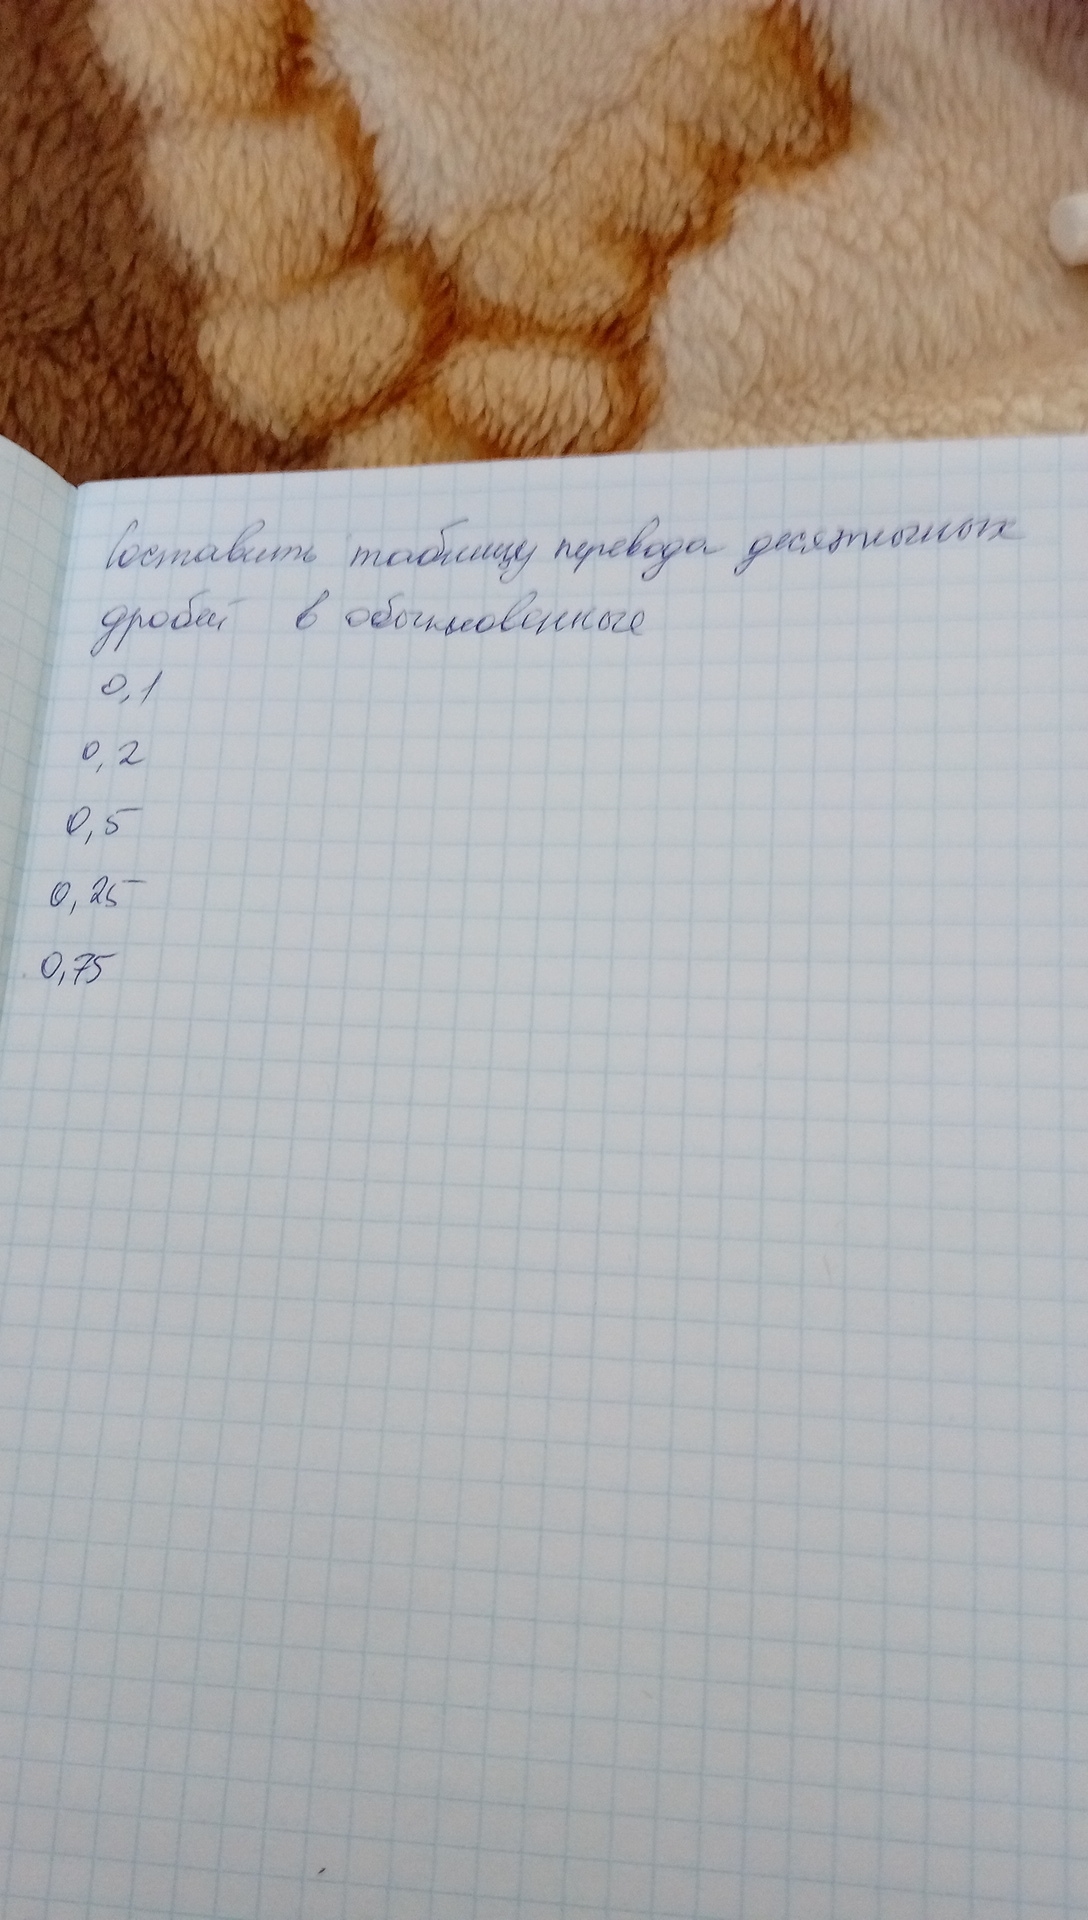 Составить таблицу перевода десятичных
дробей в обыкновенные
0,1
0,2
0,5
0,25
0,75